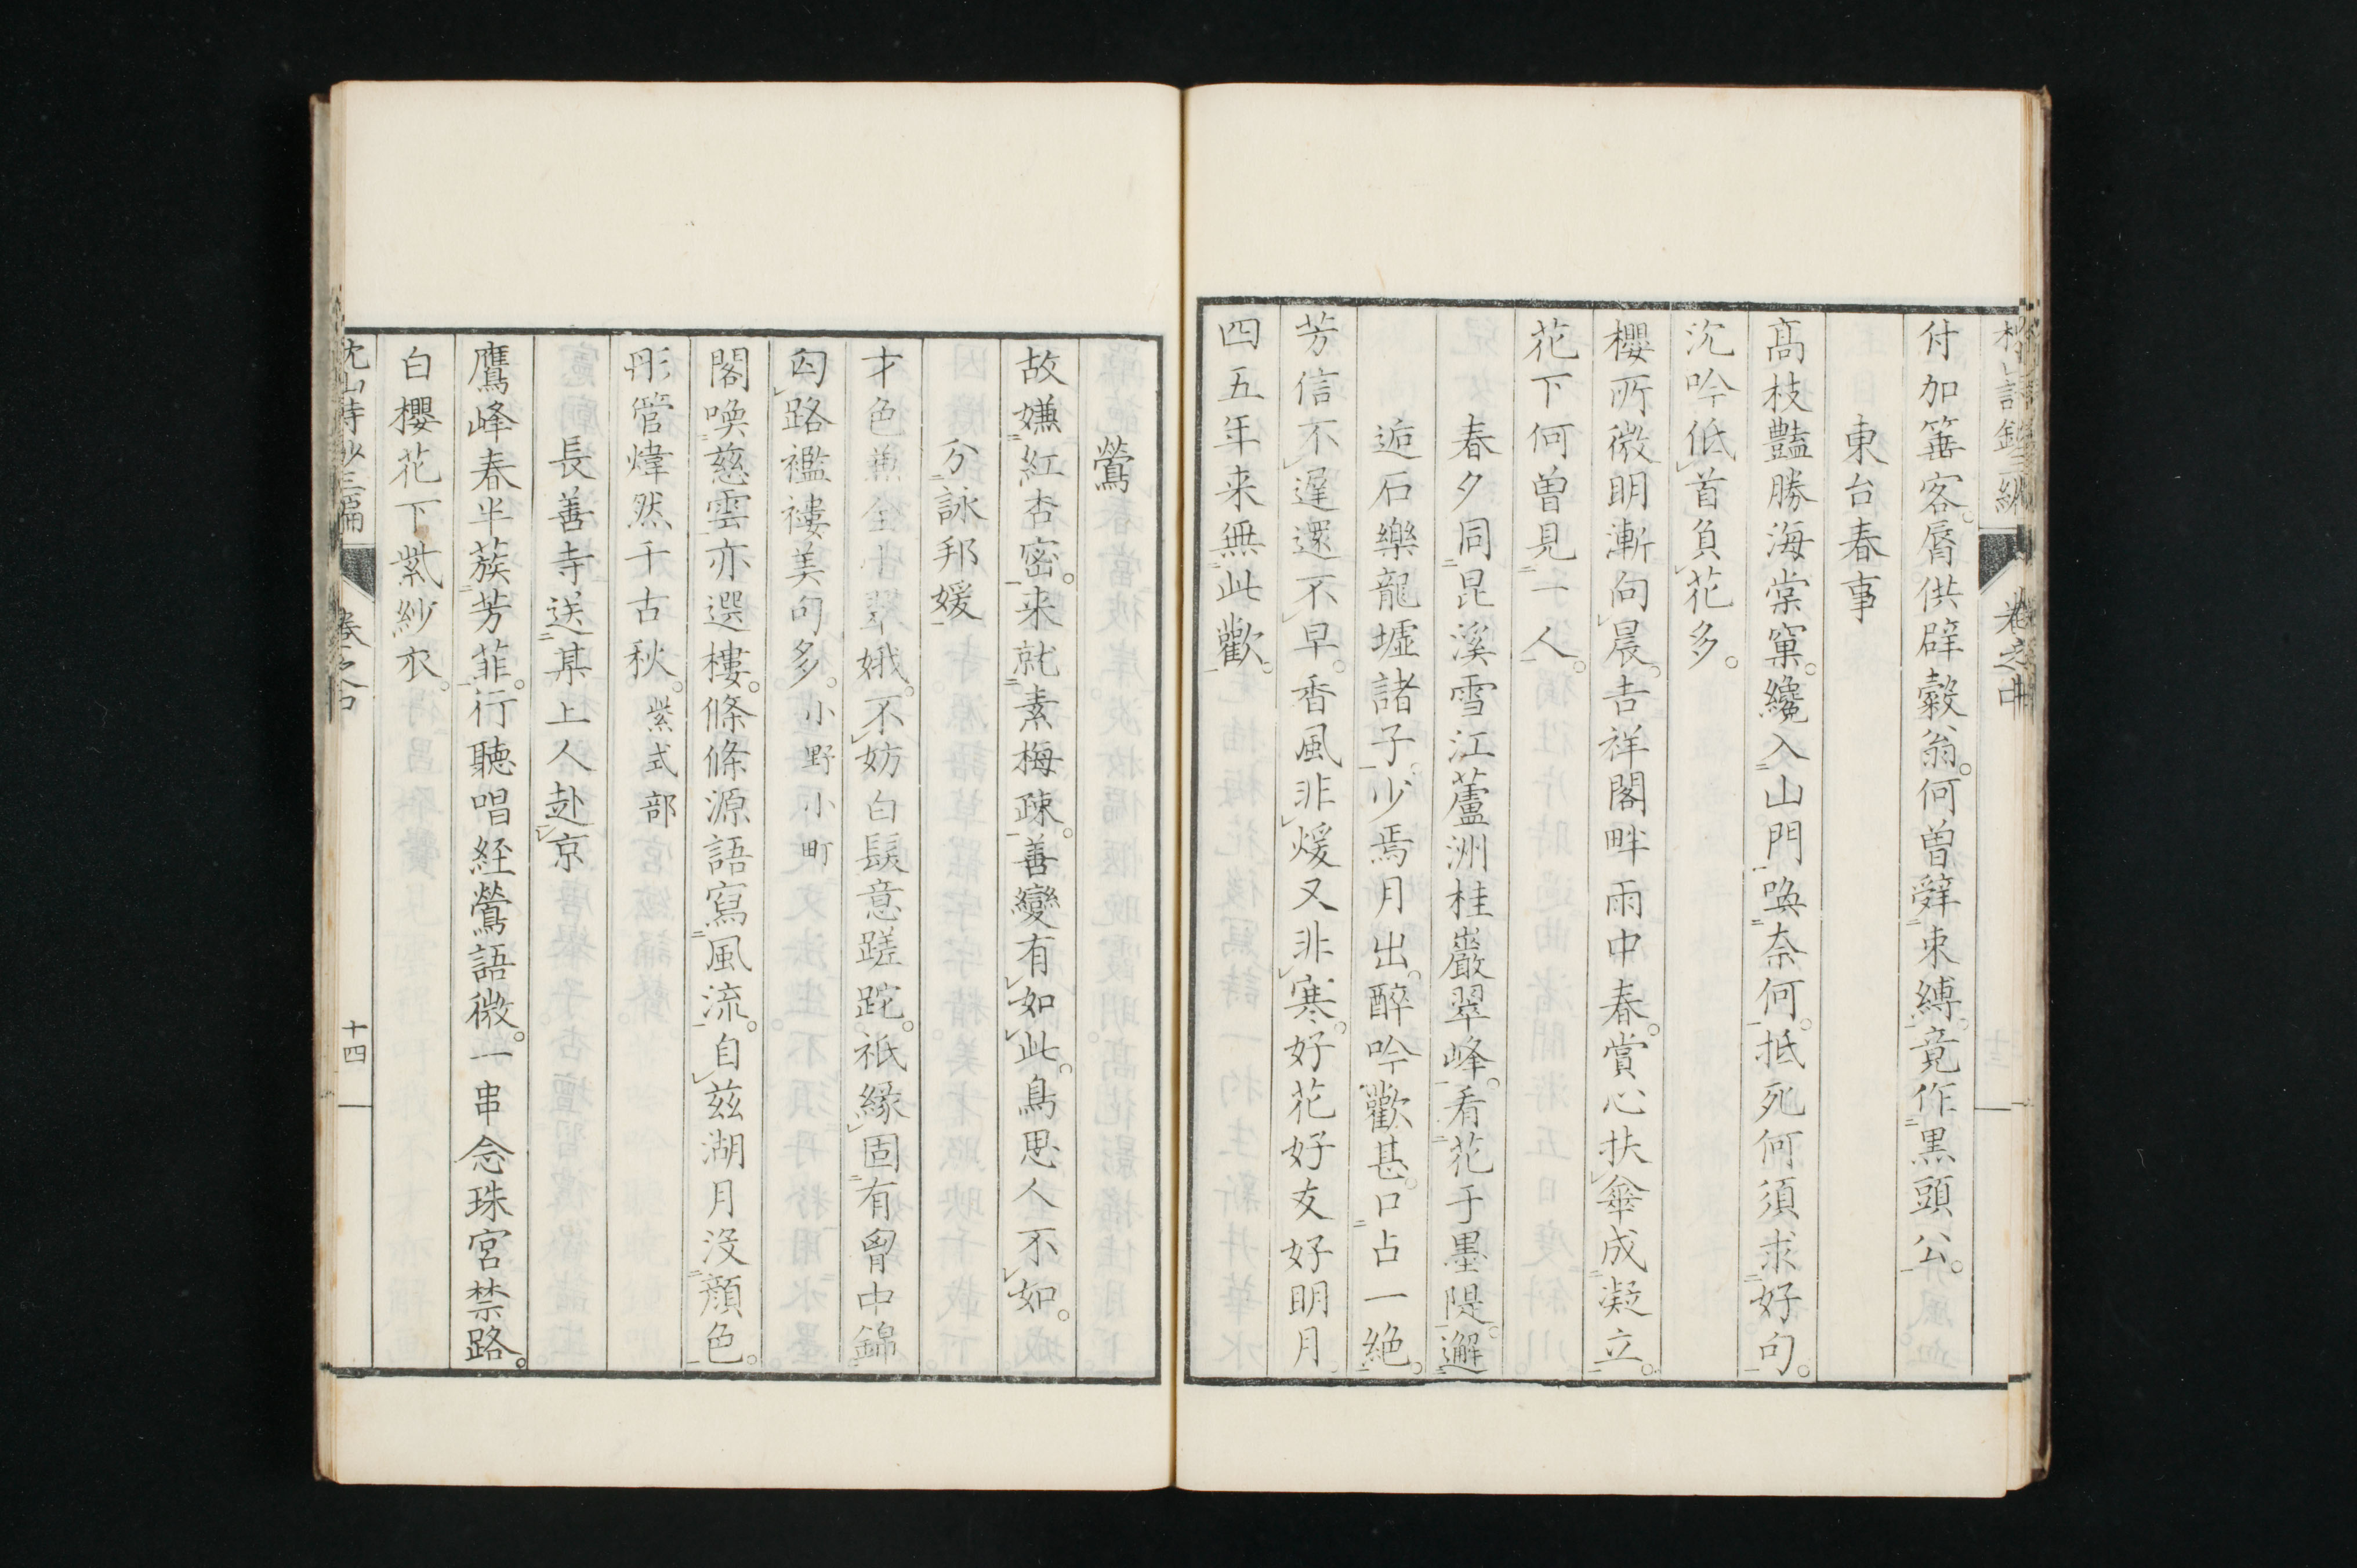 付加篝客。屑供辟穀翁。何曽辤束縛。竟作黒頭公。
東台春事
高枝豔勝海棠窠。纔入山門喚奈何。抵死何須求好句。
沉吟低首負花多。
櫻所微明漸向晨。吉祥閣畔雨中春。賞心扶傘成凝立。
花下何曽見一人。
春夕同昆溪雪江蘆洲桂巖翠峰。看花于墨隄。邂
逅石樂龍墟諸子。少焉月出。醉吟歡甚。口占一絶。
芳信不遲還不早。香風非煖又非寒。好花好友好明月
四五年来無此歡。
鶯
故嫌紅杏密。来就素梅疎。善變有如此。鳥思人不如。
分詠邦媛
才色兼全皆翠娥。不妨白髮意蹉跎。祇縁固有胷中錦
匃路襤褸美句多。小野小町
閣喚慈雲亦選樓。條條源語寫風流。自茲湖月没顔色。
彤管煒然千古秋。紫式部
長善寺送某上人赴京
鷹峰春半蔟芳菲。行聴唱経鶯語微。一串念珠宮禁路。
白櫻花下紫紗衣。
枕山詩鈔三編
卷之中
十四